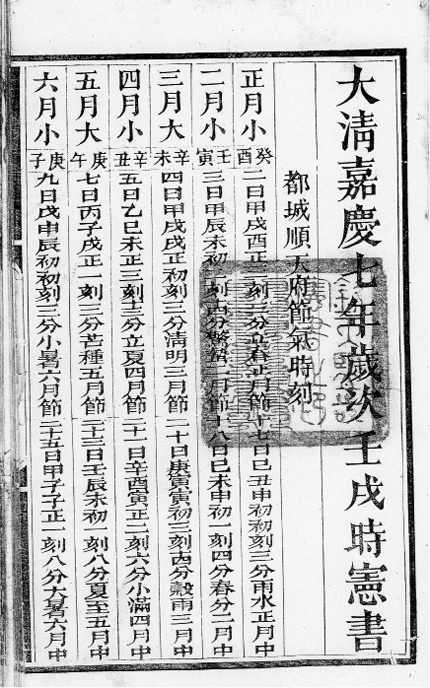 大清嘉慶七年歲次壬戌時憲書
都城順天府節氣時刻
正月小 癸酉 二日甲戌酉正刻分立春正月節 十七日己丑申初初刻三分雨水正月中
二月小 壬寅 三日甲辰未初刻分驚蟄二月節 十八日己未申初一刻四分春分二月中
三月大 辛未 四日甲戌戌正初刻三分清明三月節 二十日庚寅寅初三刻分穀雨三月中
四月小 辛丑 五日乙巳未正三刻十三分立夏四月節 二十一日辛酉寅正二刻六分小滿四月中
五月大 庚午 七日丙子戌正一刻三分芒種五月節 二十三日壬辰未初一刻八分夏至五月中
六月小 庚子 九日戊申辰初初刻三分小暑六月節 二十五日甲子子正一刻八分大暑六月中